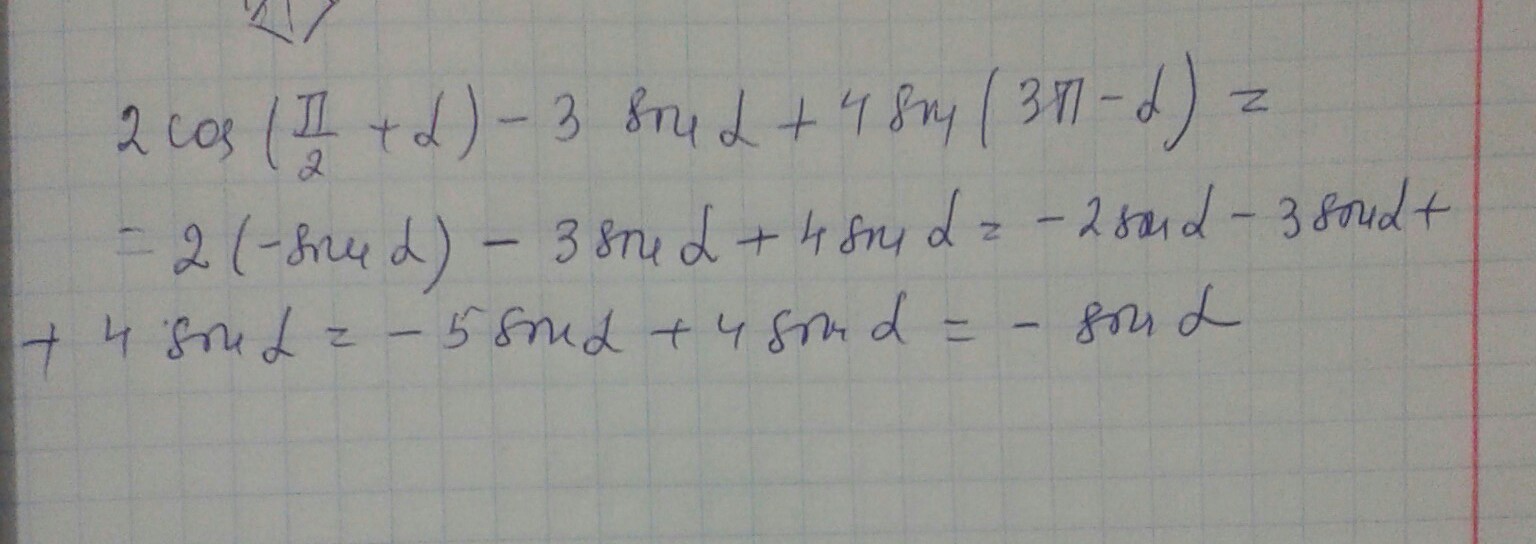 2 cos (π/2 + α) - 3 sin α + 4 sin (3π - α) =
= 2 (-sin α) - 3 sin α + 4 sin α = - 2 sin α - 3 sin α +
+ 4 sin α = - 5 sin α + 4 sin α = - sin α